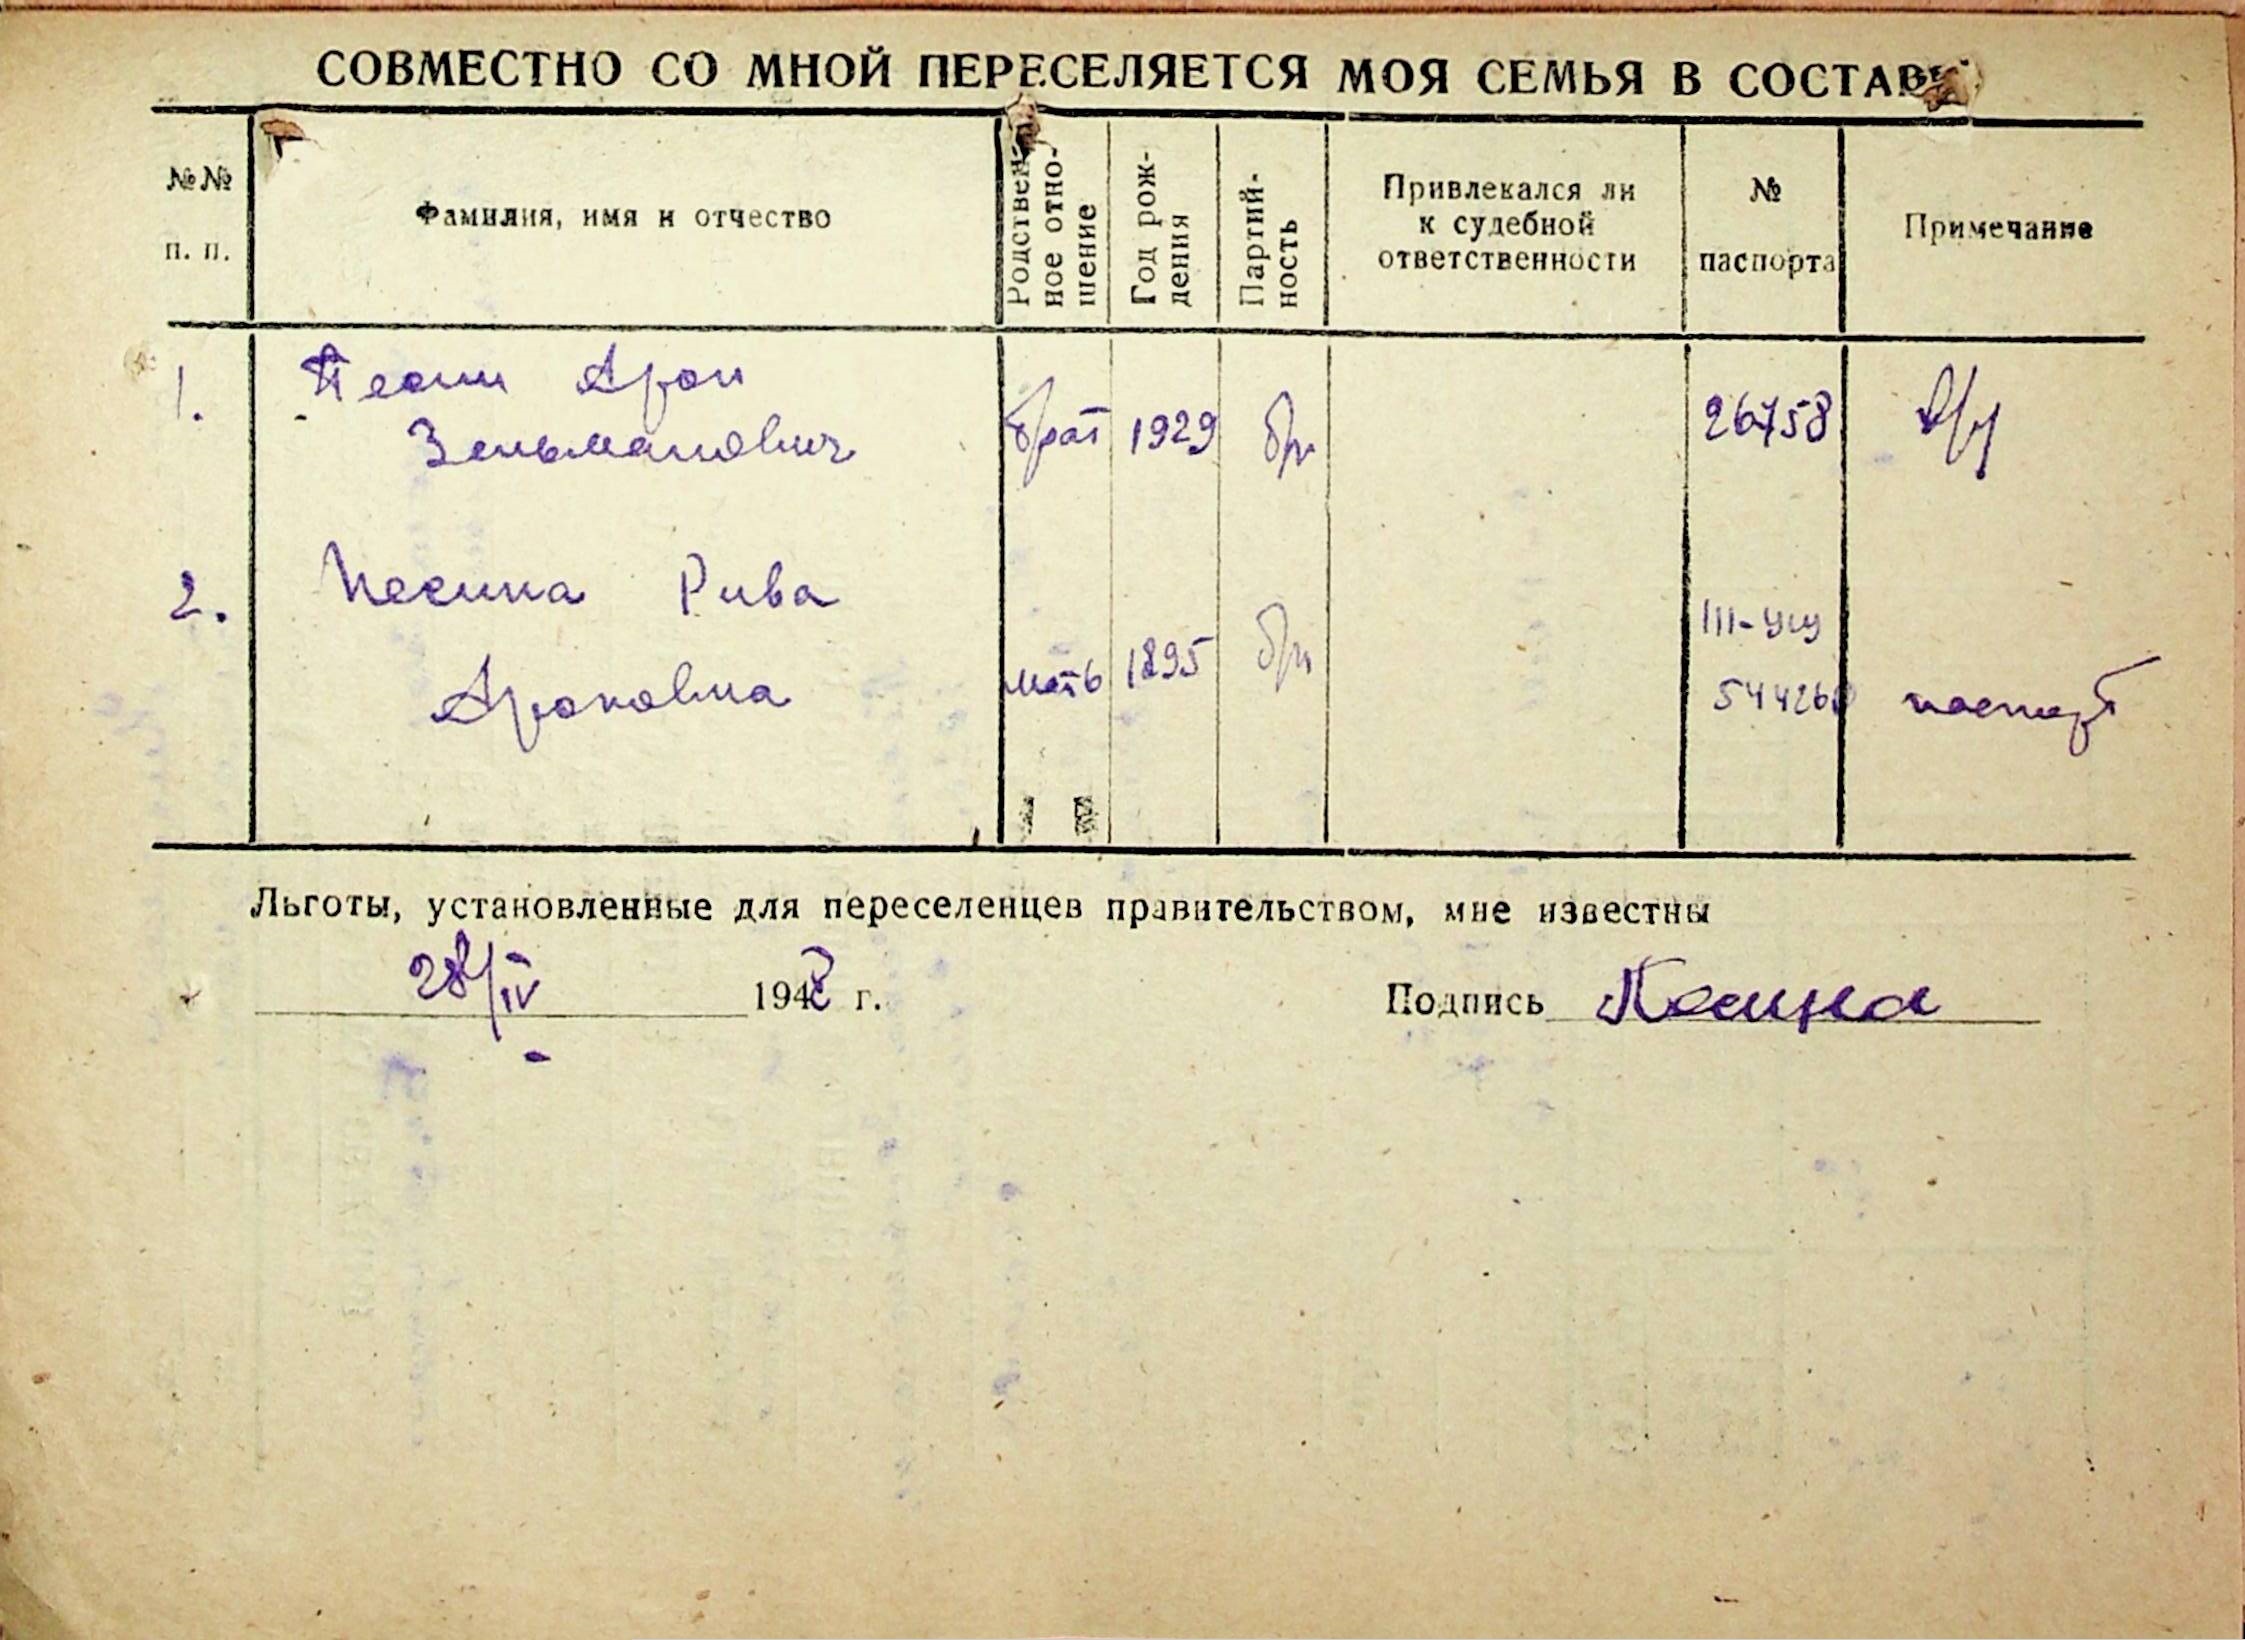 СОВМЕСТНО СО МНОЙ ПЕРЕСЕЛЯЕТСЯ МОЯ СЕМЬЯ В СОСТАВЕ
№№ п. п.
Фамилия, имя и отчество
Родствен-
ное отно-
шение
Год рож-
дения
Партий-
ность
Привлекался ли
к судебной
ответственности
№
паспорта
Примечание
1. Песин Арон
Зельманович брат 1929 бп 26758
2. Песина Рива
III-
Ароновна мать 1895 бп 544268 паспорт
Льготы, установленные для переселенцев правительством, мне известны
28/IV 1948 г. Подпись Песина